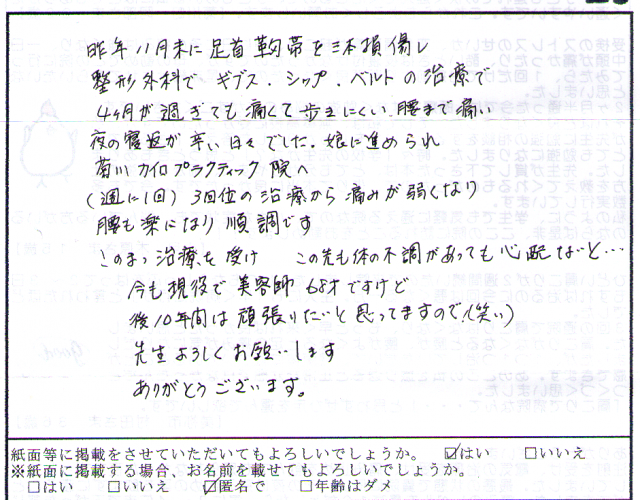 昨年11月末に足首靭帯を三本損傷し
整形外科で ギブス・シップ・ベルトの治療で
4ヶ月が過ぎても痛くて歩きにくい 腰まで痛い
夜の寝返が辛い日々でした。娘に進められ
菊川カイロプラクティック院へ
(週に1回) 3回位の治療から痛みが弱くなり
腰も楽になり順調です
このまゝ治療を受け この先も体の不調があっても心配ないと…
今も現役で美容師 68才ですけど
後10年間は頑張りたいと思ってますので(笑い)
先生よろしくお願いします
ありがとうございます。
紙面等に掲載をさせていただいてもよろしいでしょうか。 ☑はい □いいえ
※紙面に掲載する場合、お名前を載せてもよろしいでしょうか。
□はい □いいえ ☑匿名で □年齢はダメ